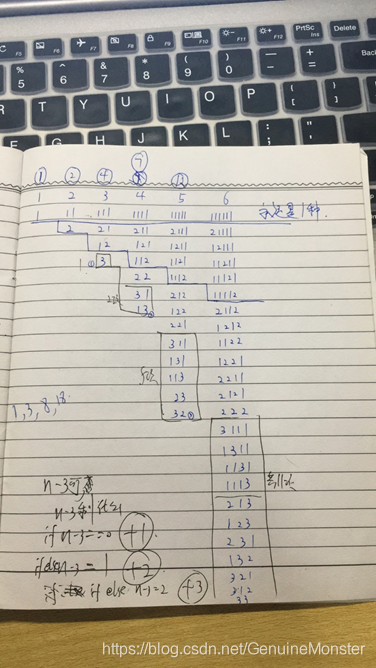 PrtSc
Insert
Delete
F5 F6 F7 F8 F9 F10 F11 F12
% 5 ^ 6 & 7 * 8 ( 9 ) 0 — - + =
R T Y U I O P { [ } ]
7
① ② ④ ⑬
1 2 3 4 5 6
1 11 111 1111 11111 111111 还是1种
2 21 211 2111 21111
12 121 1211 12111
3 112 1121 11211
22 1112 11121
31 212 11112
13 122 2112
221 1212
311 1122
131 1221
113 2211
23 2121
32 222
3111
1311
1131
1113
213
123
231
132
321
312
33
1,3,8,18
n-3
n-3
if n-3==0 +1
if else n-3=1 +2
if else n-3=2 +3
https://blog.csdn.net/GenuineMonster